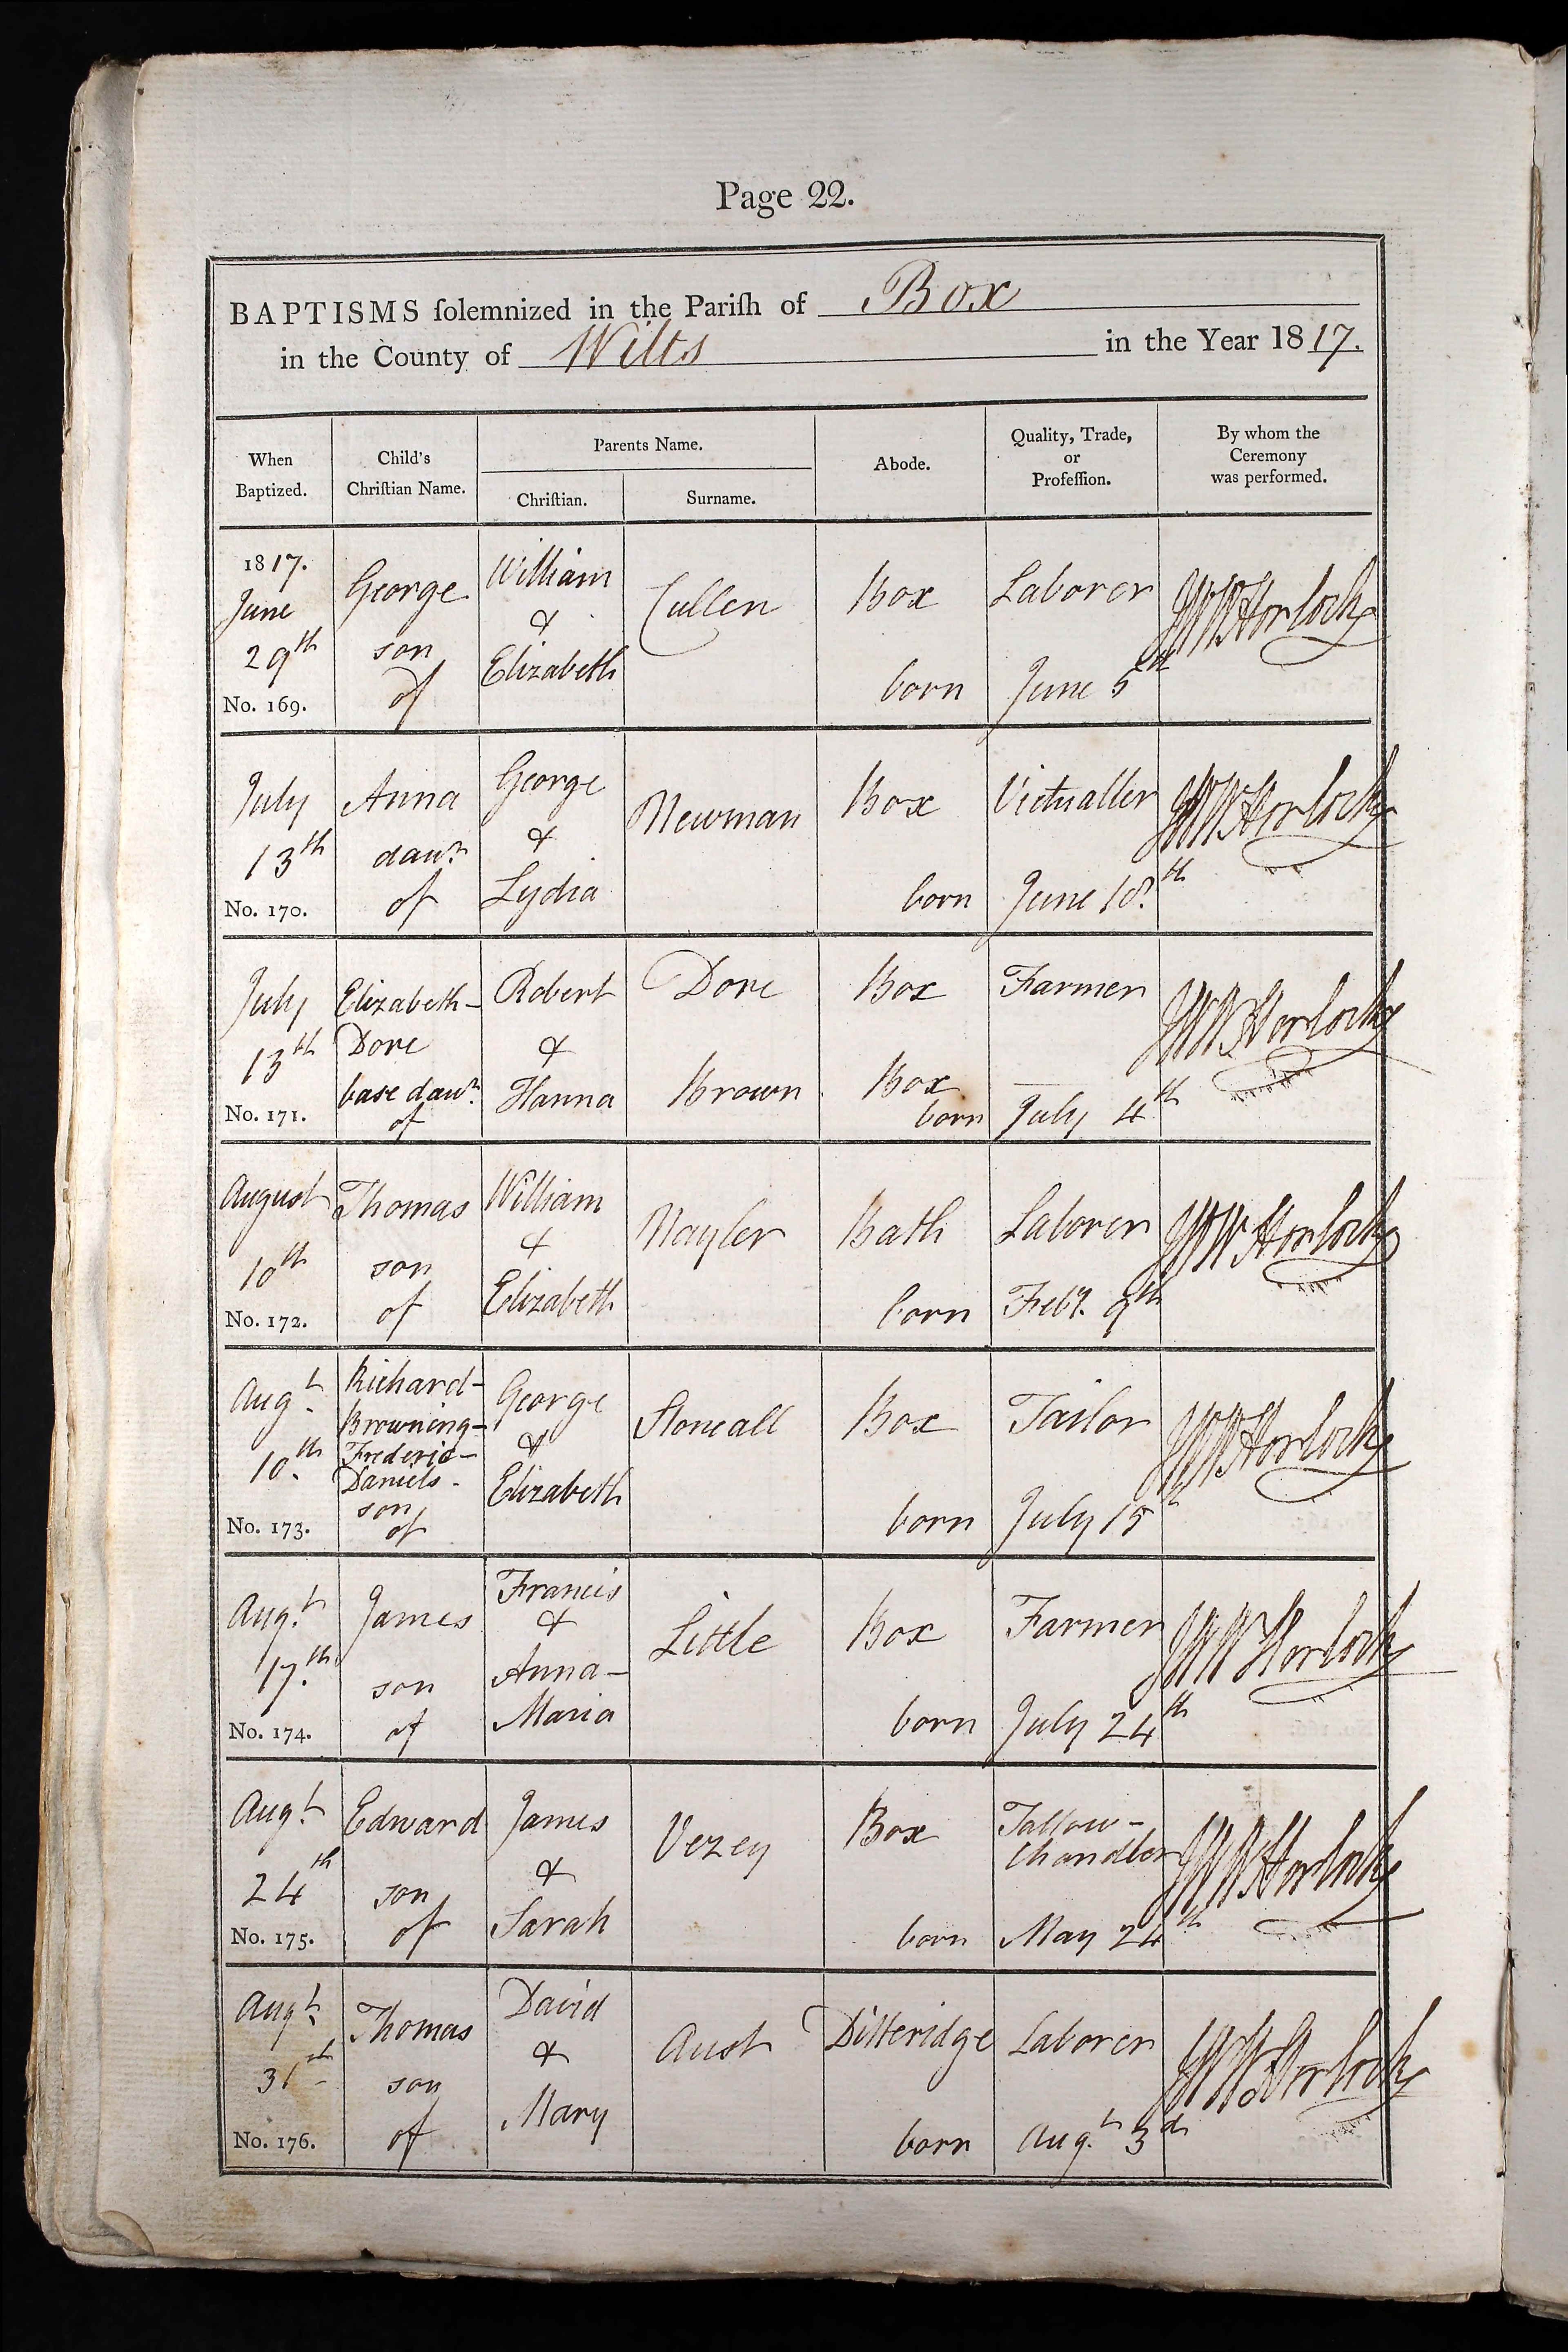 Page 22.
BAPTISMS ſolemnized in the Pariſh of Box
in the County of Wilts in the Year 1817.
When Baptized.
Child's Chriſtian Name.
Parents Name.
Chriſtian.
Surname.
Abode.
Quality, Trade, or Profeſſion.
By whom the Ceremony was performed.
1817.
June
29th
No. 169.
George
son
of
William
&
Elizabeth
Cullen
Box
born
Laborer
June 5th
JWWHorlock
July
13th
No. 170.
Anna
daur.
of
George
&
Lydia
Newman
Box
born
Victualler
June 18th
JWWHorlock
July
13th
No. 171.
Elizabeth-
Dore
base daur.
of
Robert
&
Hanna
Dore
Brown
Box
Box
born
Farmer
July 4th
JWWHorlock
August
10th
No. 172.
Thomas
son
of
William
&
Elizabeth
Nayler
Bath
born
Laborer
Feby. 9th
JWWHorlock
Augt.
10th
No. 173.
Richard-
Browning-
Frederic-
Daniels-
son
of
George
&
Elizabeth
Stoneall
Box
born
Tailor
July 15th
JWWHorlock
Augt.
17th
No. 174.
James
son
of
Francis
&
Anna-
Maria
Little
Box
born
Farmer
July 24th
JWWHorlock
Augt.
24th
No. 175.
Edward
son
of
James
&
Sarah
Vezey
Box
born
Tallow-
Chandler
May 24th
JWWHorlock
Augt.
31st
No. 176.
Thomas
son
of
David
&
Mary
Aust
Ditteridge
born
Laborer
Augt. 3d
JWWHorlock